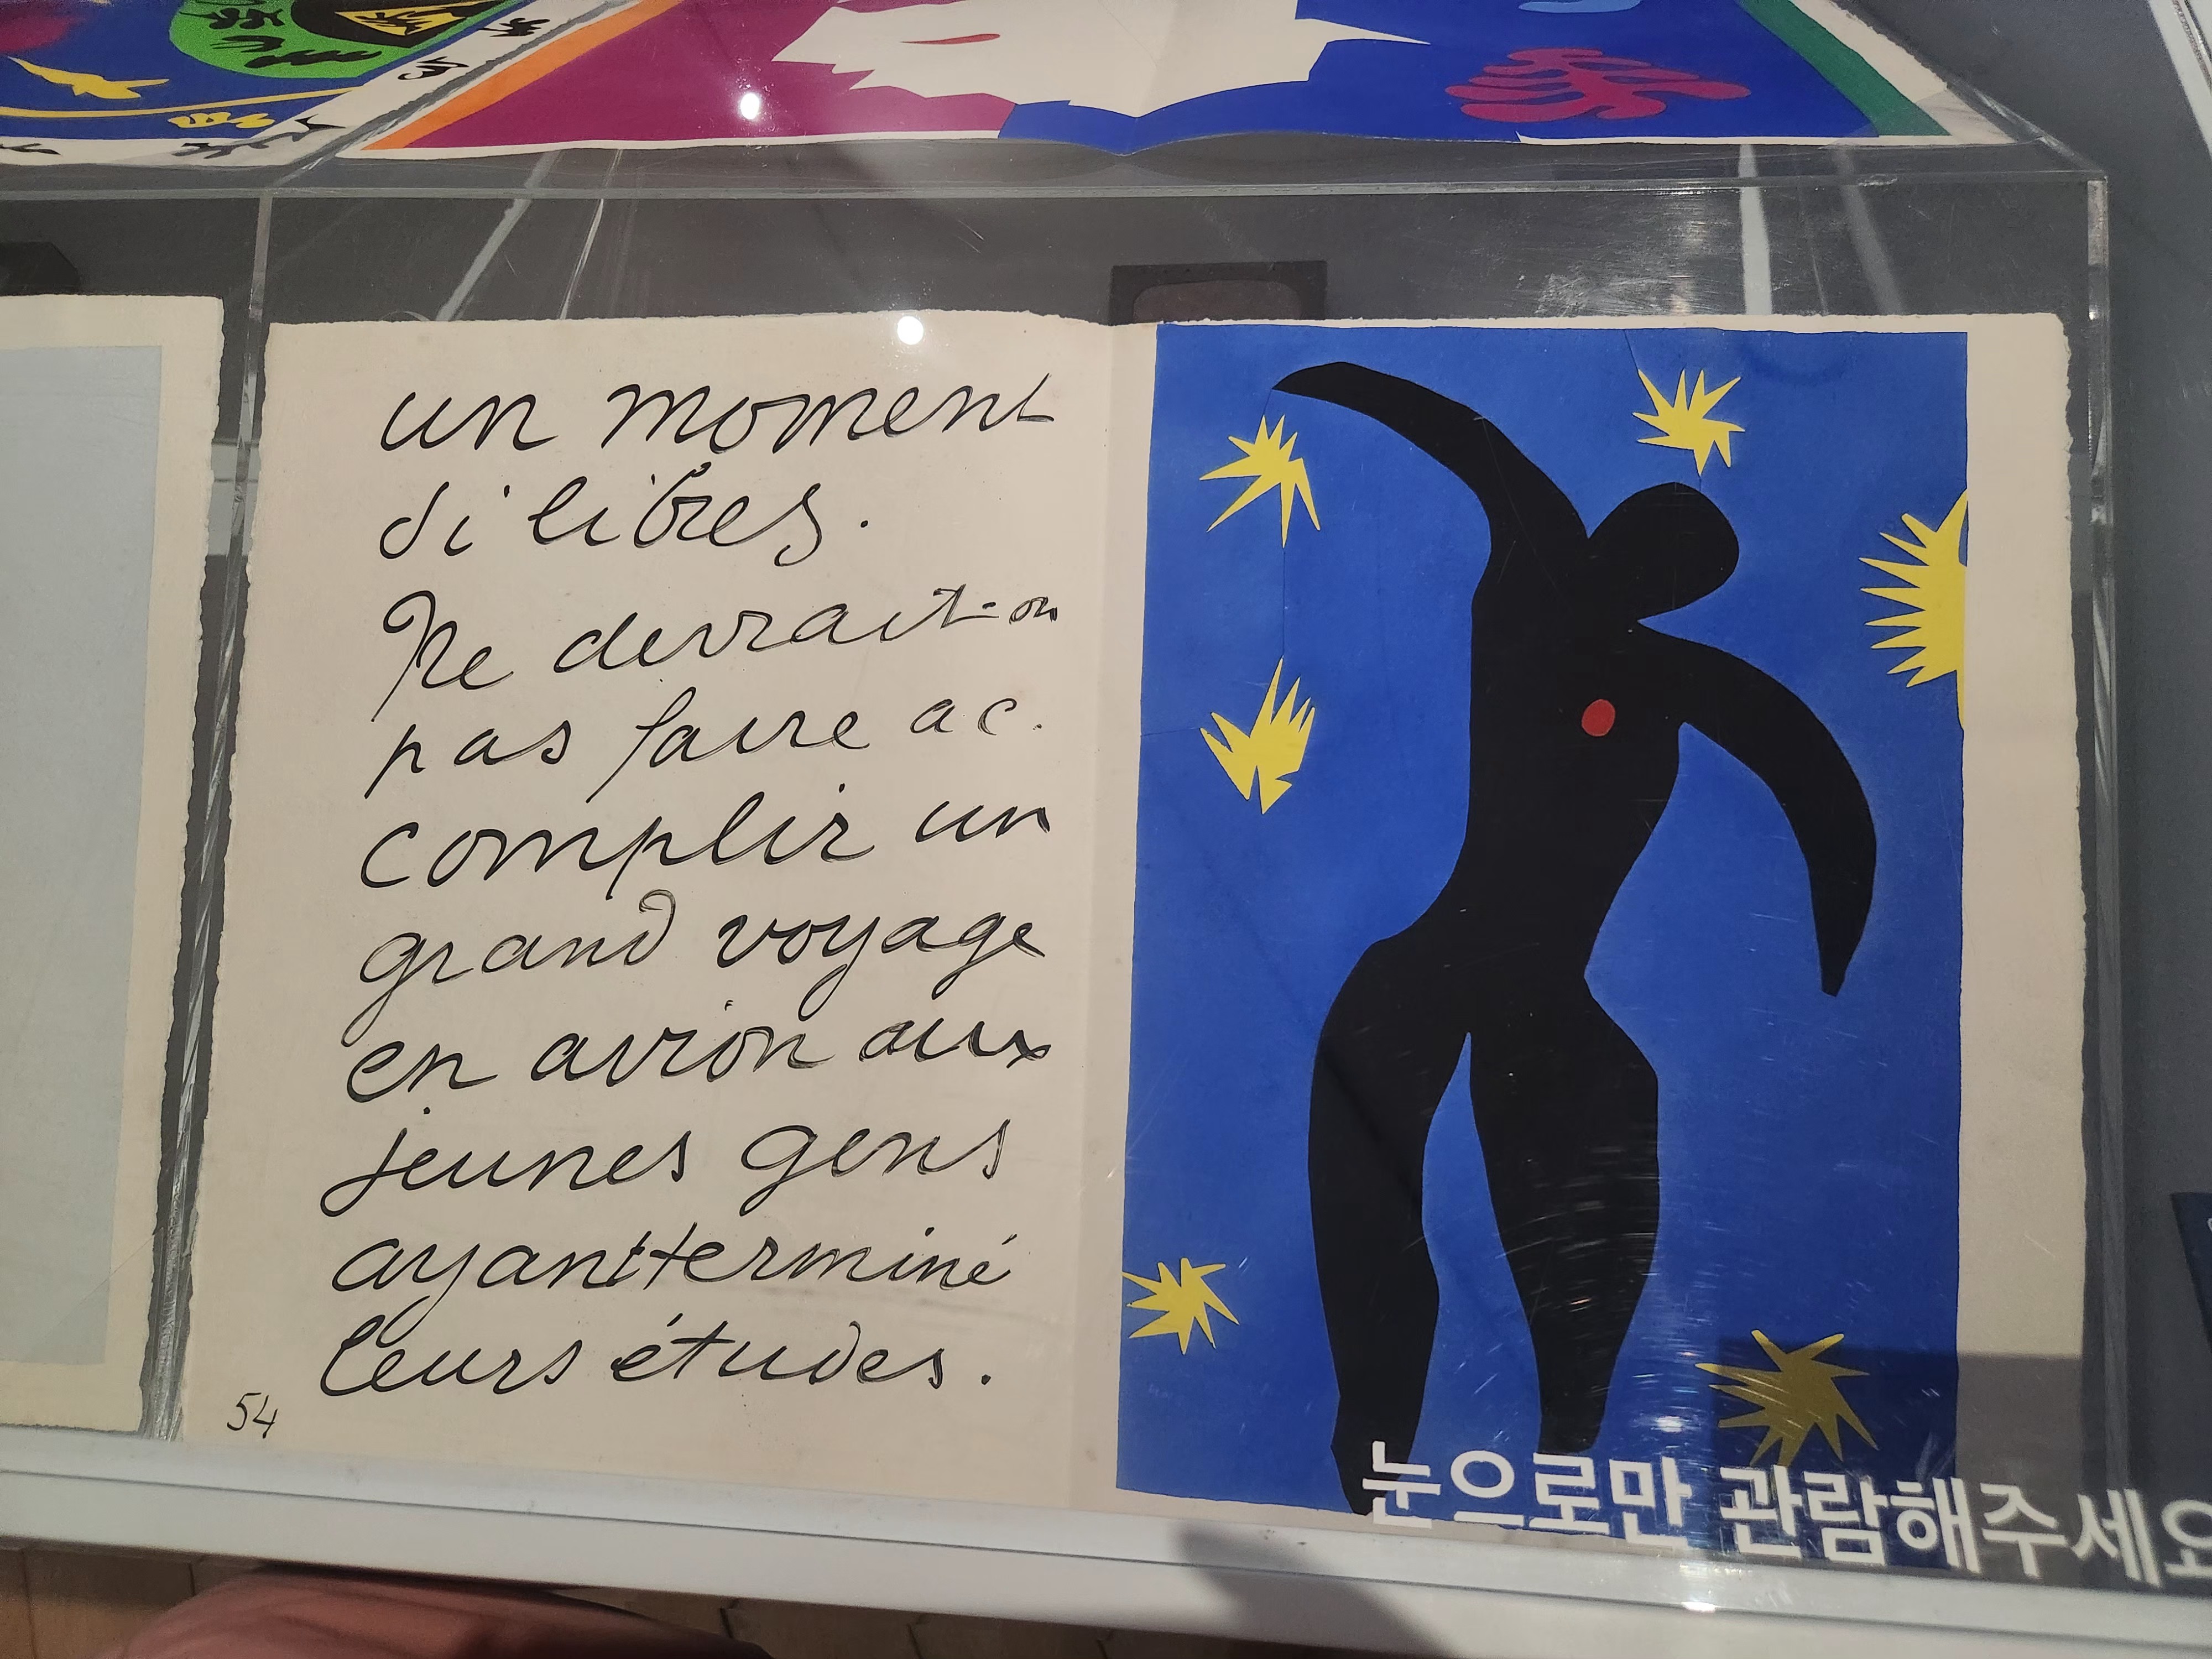 un moment
si libres.
Ne devrait-on
pas faire ac-
complir un
grand voyage
en avion aux
jeunes gens
ayant terminé
leurs études.
54
눈으로만 관람해주세요